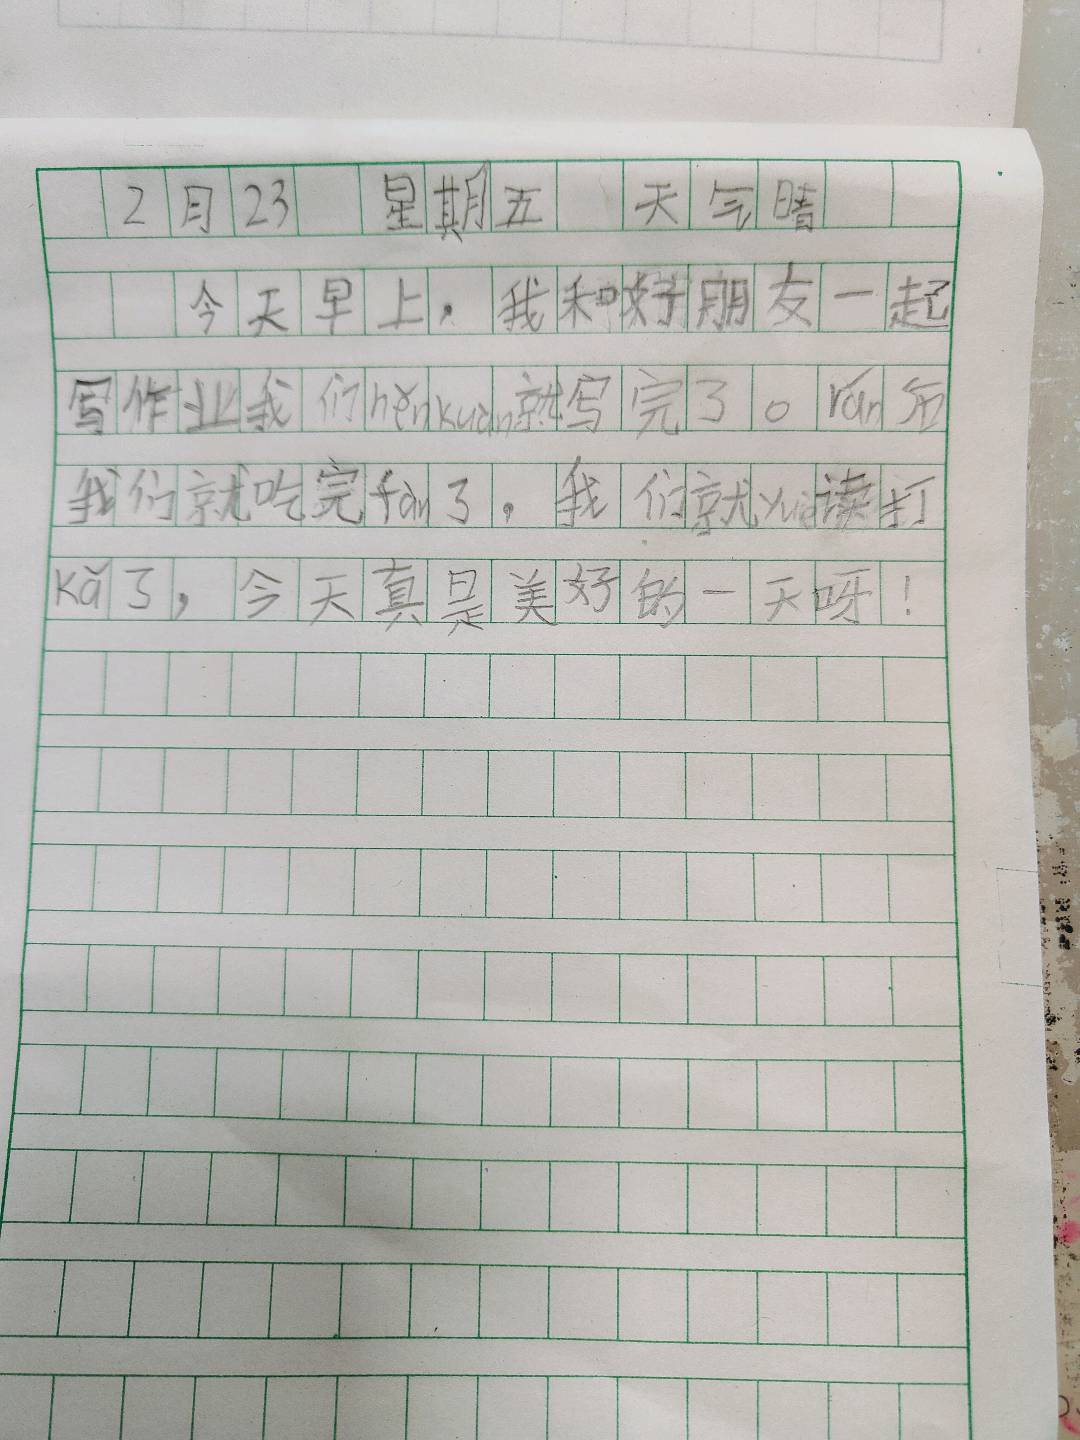 2月23 星期五 天气晴
今天早上，我和好朋友一起
写作业我们hěnkuàn就写完了。rán后
我们就吃完fàn了，我们就yuè读打
kǎ了，今天真是美好的一天呀！